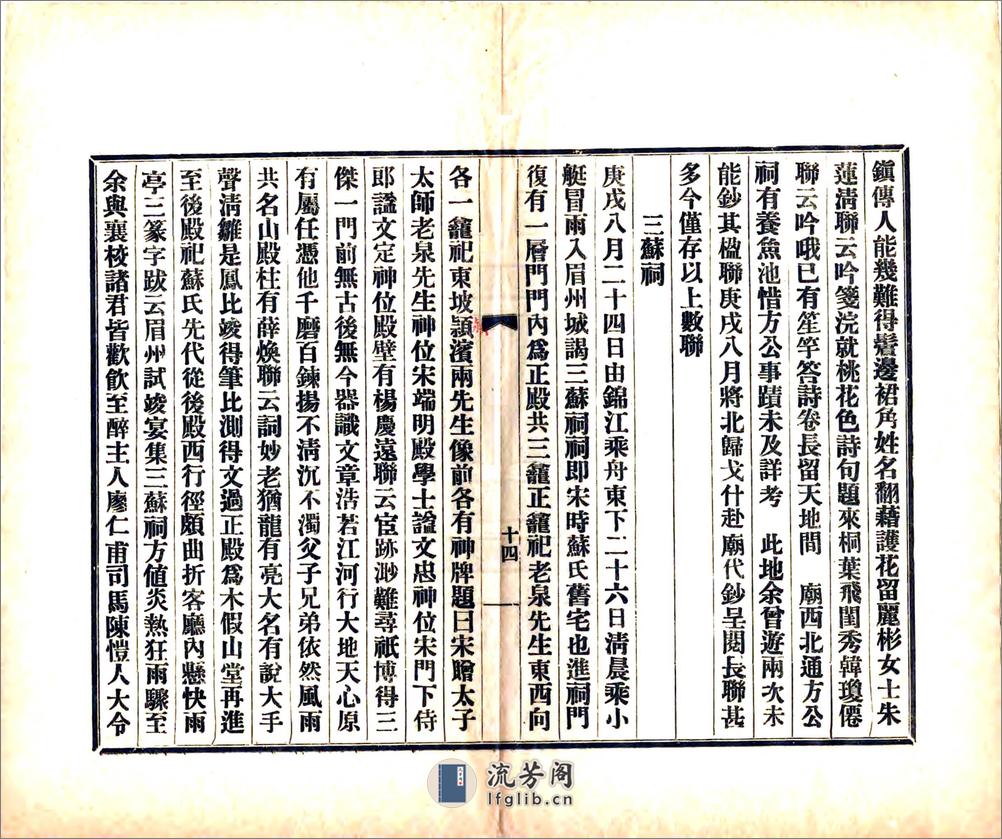 鎭傳人能幾難得鬢邊裙角姓名翻藉護花留麗彬女士朱
蓮淸聯云吟箋浣就桃花色詩句題來桐葉飛閨秀韓瓊僊
聯云吟哦已有笙竽答詩卷長留天地間　廟西北通方公
祠有養魚池惜方公事蹟未及詳考　此地余曾遊兩次未
能鈔其楹聯庚戌八月將北歸戈什赴廟代鈔呈閱長聯甚
多今僅存以上數聯
三蘇祠
庚戌八月二十四日由錦江乘舟東下二十六日淸晨乘小
艇冒雨入眉州城謁三蘇祠祠卽宋時蘇氏舊宅也進祠門
復有一層門門內爲正殿共三龕正龕祀老泉先生東西向
十四
各一龕祀東坡潁濱兩先生像前各有神牌題曰宋贈太子
太師老泉先生神位宋端明殿學士謚文忠神位宋門下侍
郎謚文定神位殿壁有楊慶遠聯云宦跡渺難尋祇博得三
傑一門前無古後無今器識文章浩若江河行大地天心原
有屬任憑他千磨百鍊揚不淸沉不濁父子兄弟依然風雨
共名山殿柱有薛煥聯云詞妙老猶龍有亮大名有說大手
聲淸雛是鳳比竣得筆比測得文過正殿爲木假山堂再進
至後殿祀蘇氏先代從後殿西行徑頗曲折客廳內懸快雨
亭三篆字跋云眉州試竣宴集三蘇祠方値炎熱狂雨驟至
余與襄校諸君皆歡飮至醉主人廖仁甫司馬陳愷人大令
流芳阁
lfglib.cn